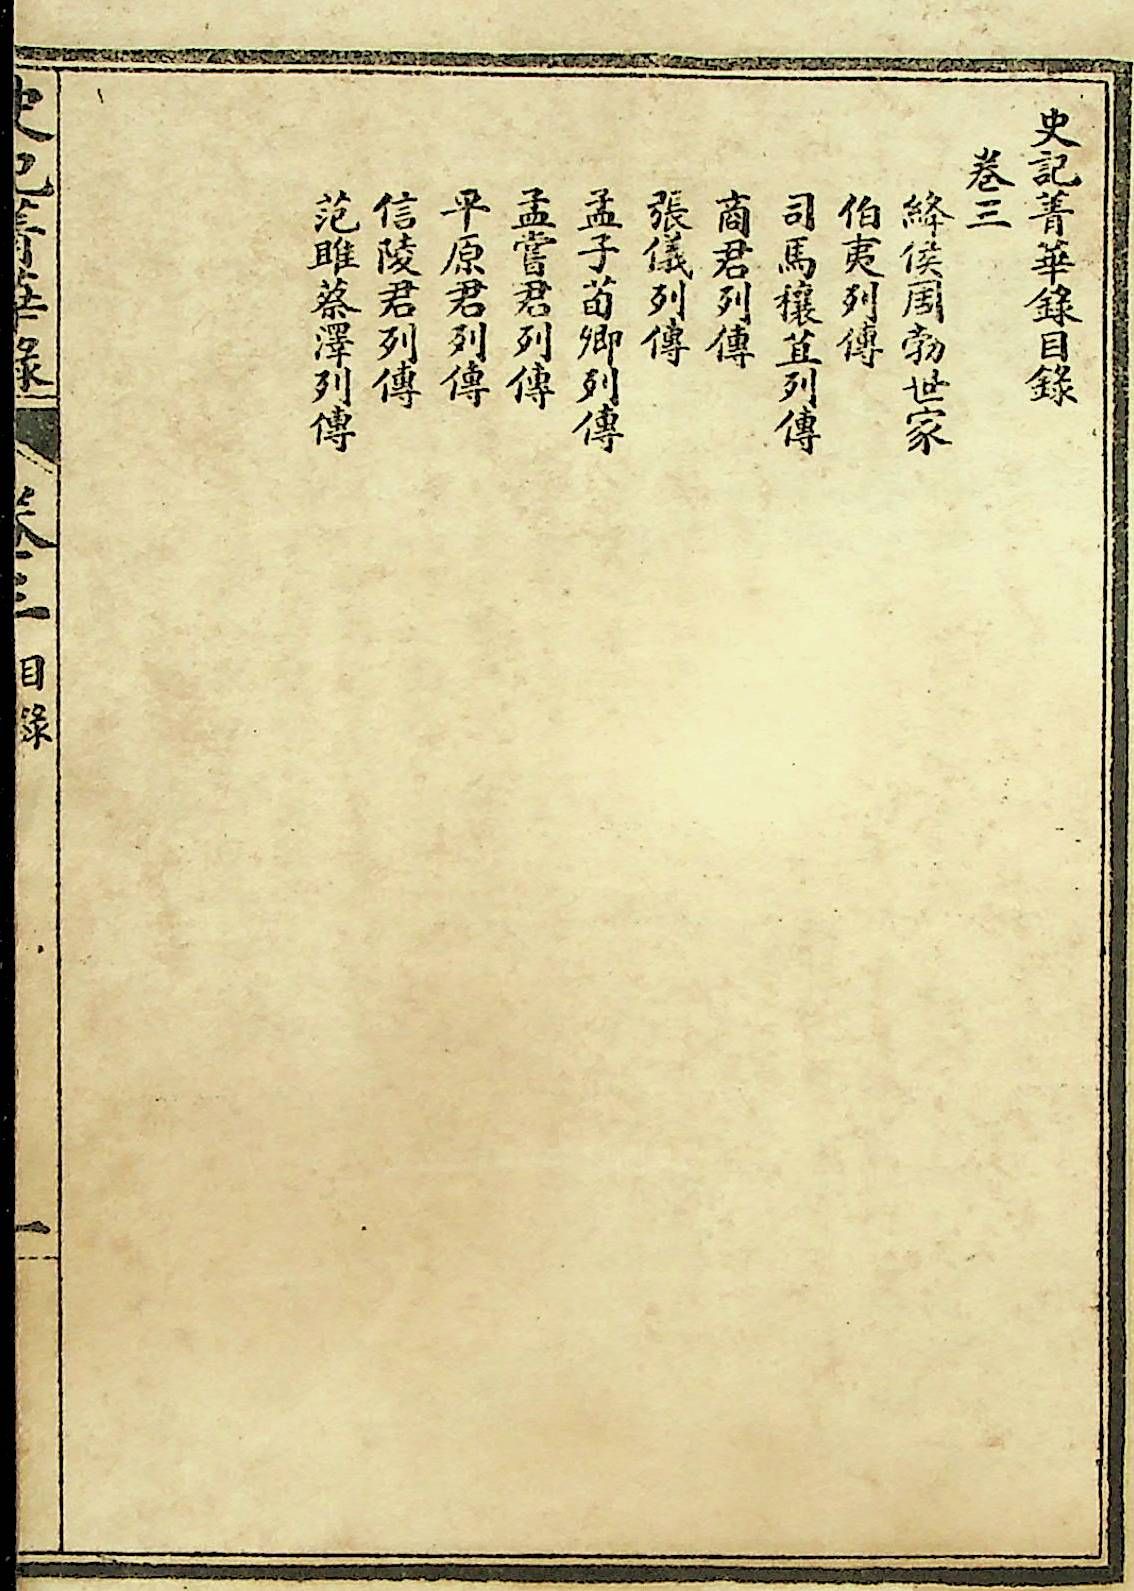 史記菁華錄目錄
卷三
絳侯周勃世家
伯夷列傳
司馬穰苴列傳
商君列傳
張儀列傳
孟子荀卿列傳
孟嘗君列傳
平原君列傳
信陵君列傳
范雎蔡澤列傳
史記菁華錄
卷三
目錄
一